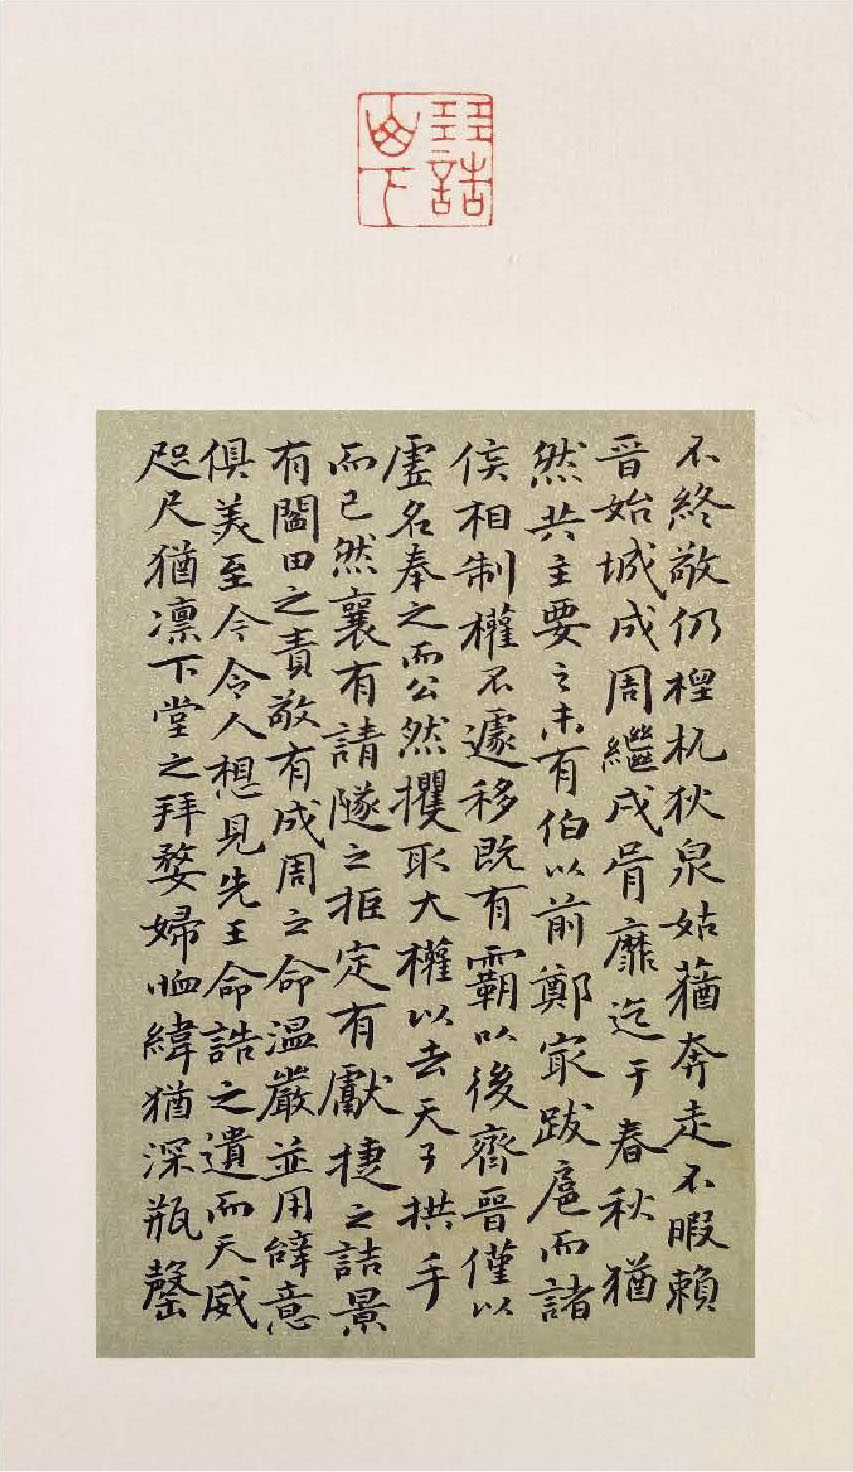 不終敬仍桯杌狄泉姑蕕奔走不暇賴
晉始城成周繼戍胥靡迄于春秋猶
然共主要之未有伯以前鄭㝡跋扈而諸
侯相制權不遽移既有霸以後齊晉僅以
虛名奉之而公然攫取大權以去天子拱手
而已然襄有請隧之拒定有獻捷之詰景
有閻田之責敬有成周之命溫嚴並用辭意
俱美至今令人想見先王命誥之遺而天威
咫尺猶凛下堂之拜嫠婦恤緯猶深瓶罄